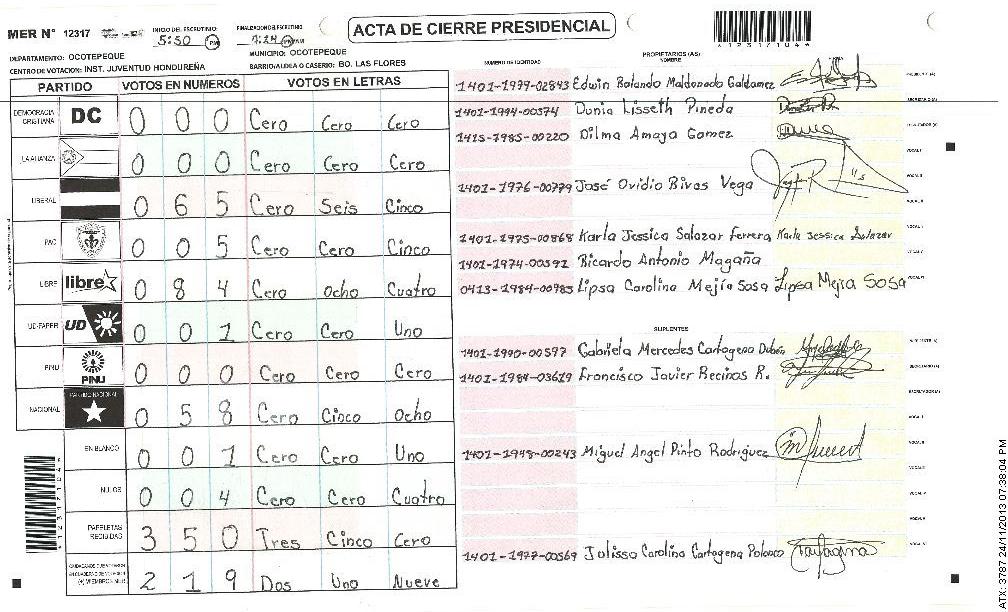 MER N° 12317
INICIO DEL ESCRUTINIO:
5:50 PM
FINALIZACION DEL ESCRUTINIO
PM
ACTA DE CIERRE PRESIDENCIAL
DEPARTAMENTO: OCOTEPEQUE
MUNICIPIO: OCOTEPEQUE
CENTRO DE VOTACION: INST. JUVENTUD HONDUREÑA
BARRIO/ALDEA O CASERIO: BO. LAS FLORES
PARTIDO VOTOS EN NUMEROS VOTOS EN LETRAS
DEMOCRACIA CRISTIANA DC 0 0 0 Cero Cero Cero
LA ALIANZA 0 0 0 Cero Cero Cero
LIBERAL 0 6 5 Cero Seis Cinco
PAC 0 0 5 Cero Cero Cinco
LIBRE libre 0 8 4 Cero Ocho Cuatro
UD-FAPER UD 0 0 1 Cero Cero Uno
PINU PINU 0 0 0 Cero Cero Cero
NACIONAL PARTIDO NACIONAL 0 5 8 Cero Cinco Ocho
EN BLANCO 0 0 1 Cero Cero Uno
NULOS 0 0 4 Cero Cero Cuatro
PAPELETAS RECIBIDAS 3 5 0 Tres Cinco Cero
2 1 9 Dos Uno Nueve
NUMERO DE IDENTIDAD
PROPIETARIOS (AS)
NOMBRE
1401-1979-02843 Edwin Rolando Maldonado Galdamez
1401-1994-00574 Dunia Lisseth Pineda
1415-1985-00220 Dilma Amaya Gomez
1401-1976-00779 José Ovidio Rivas Vega
1401-1975-00868 Karla Jessica Salazar Ferrera Karla Jessica Salazar
1401-1974-00592 Ricardo Antonio Magaña
0413-1984-00985 Lipsa Carolina Mejía Sosa Lipsa Mejía Sosa
SUPLENTES
1401-1990-00597 Gabriela Mercedes Cartagena Dubón
1401-1984-03619 Francisco Javier Recinos R.
1401-1948-00243 Miguel Angel Pinto Rodriguez
1401-1977-00569 Julissa Carolina Cartagena Polanco
ATX: 3787 24/11/2013 07:38:04 PM